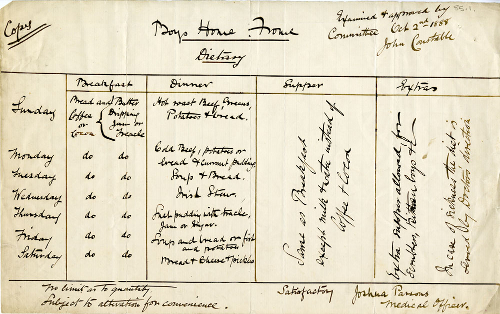 Copy
Boys Home Frome
Dietary
Examined & approved by
Committee Oct 2nd 1888
John Constable
Breakfast Dinner Supper Extras
Sunday Bread and Butter Hot roast Beef, Greens,
Coffee or Cocoa { Dripping Jam or Treacle Potatoes & bread.
Monday do do Cold Beef, potatoes or
bread & Currant pudding
Tuesday do do Soup & Bread.
Wednesday do do Irish Stew.
Thursday do do Suet pudding with treacle,
Jam or Sugar.
Friday do do Soup and bread or fish
and potatoes
Saturday do do Bread & Cheese & pickles
Same as Breakfast
except milk & water instead of
Coffee & Cocoa
Extra supper allowed for
boys
In case of sickness the diet is
Doctors direction
No limit as to quantity
Subject to alteration for convenience.
Satisfactory Joshua Parsons
Medical Officer.